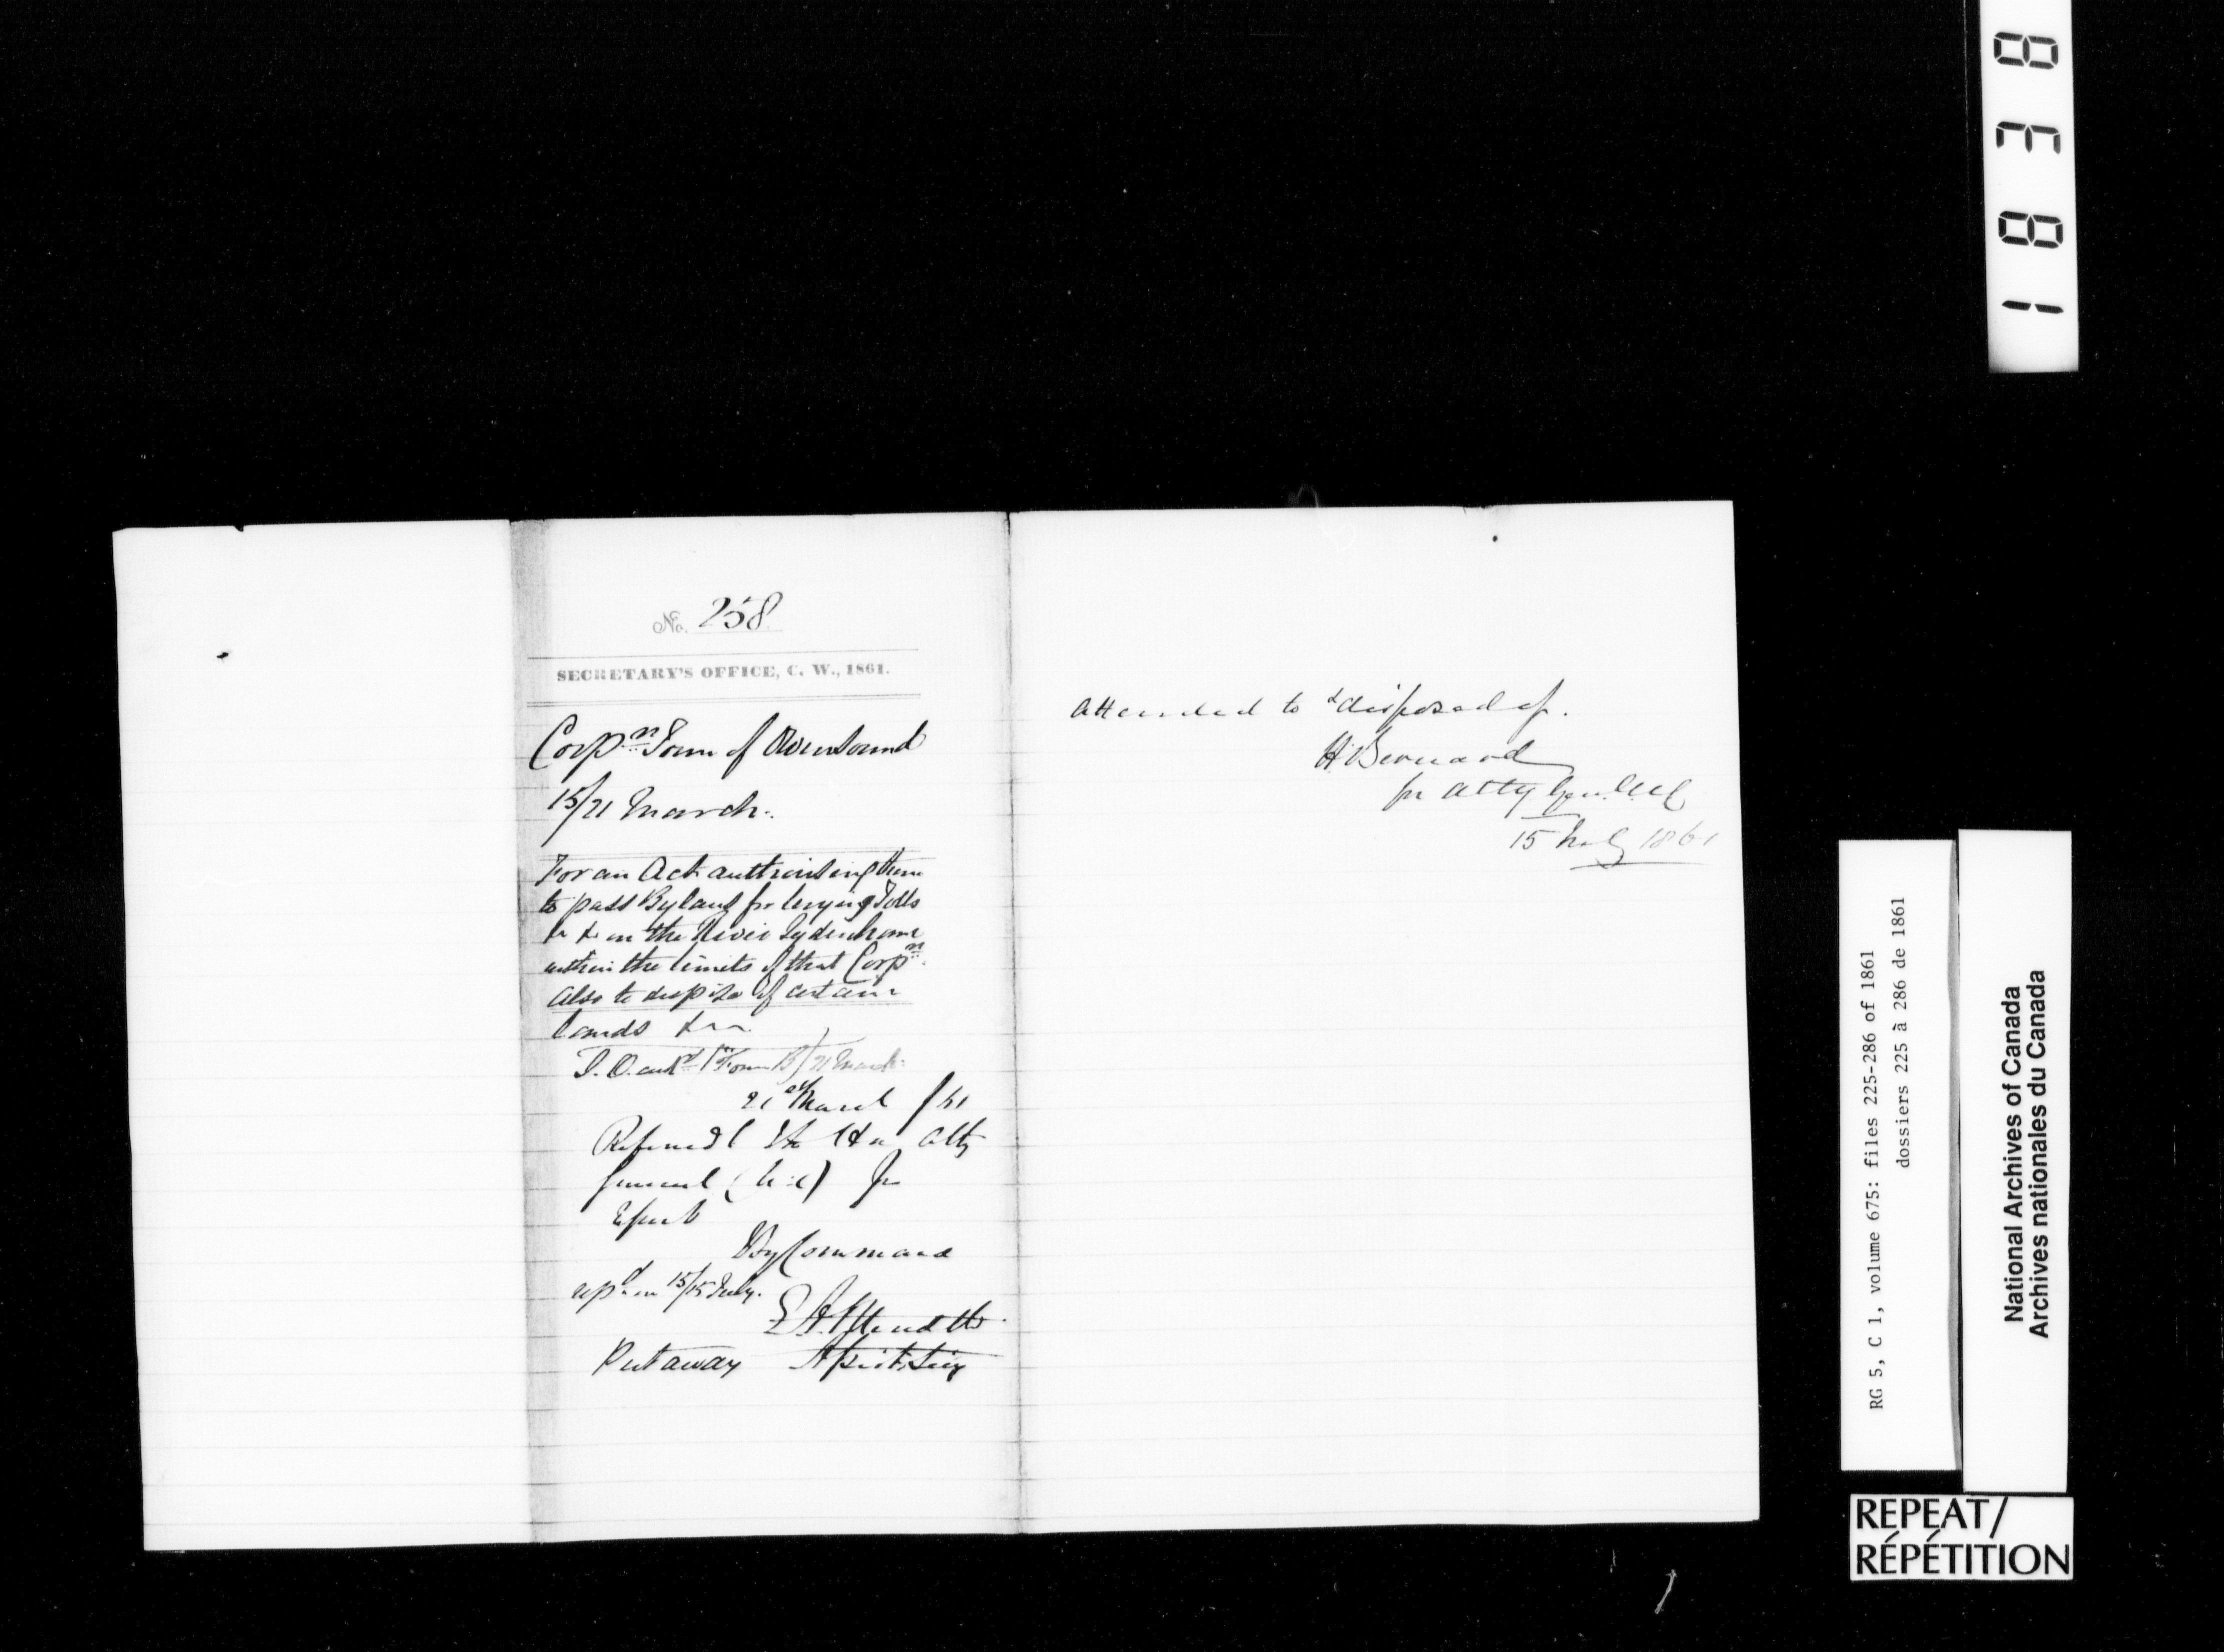 No. 258
SECRETARY'S OFFICE, C. W., 1861.
Corpn Town of Owensound
15/21 March.
For an Act authorising them
to pass Bylaws for levying Tolls
&c &c on the River Sydenham
within the limits of that Corpn.
Also to dispose of certain
lands &c.
21st March /61
Referred to the Hon Atty
General (U.C) for
report
By Command
repd on 15/15 July.
Put away
Attended to & disposed of.
H Bernard
for Atty Gen. U C
15 July 1861
1838
RG 5, C 1, volume 675: files 225-286 of 1861
dossiers 225 à 286 de 1861
National Archives of Canada
Archives nationales du Canada
REPEAT/
RÉPÉTITION